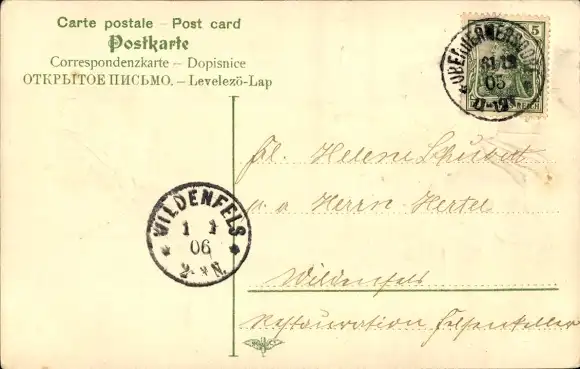 Carte postale – Post card
Postkarte
Correspondenzkarte – Dopisnice
ОТКРЫТОЕ ПИСЬМО. – Levelezö-Lap
5
31 12
05
11-12V.
Frl. Helene Schubert
a. a Herrn Hertel
WILDENFELS
1 1
06
2- N.
Wildenfels
Restauration Felsenkeller